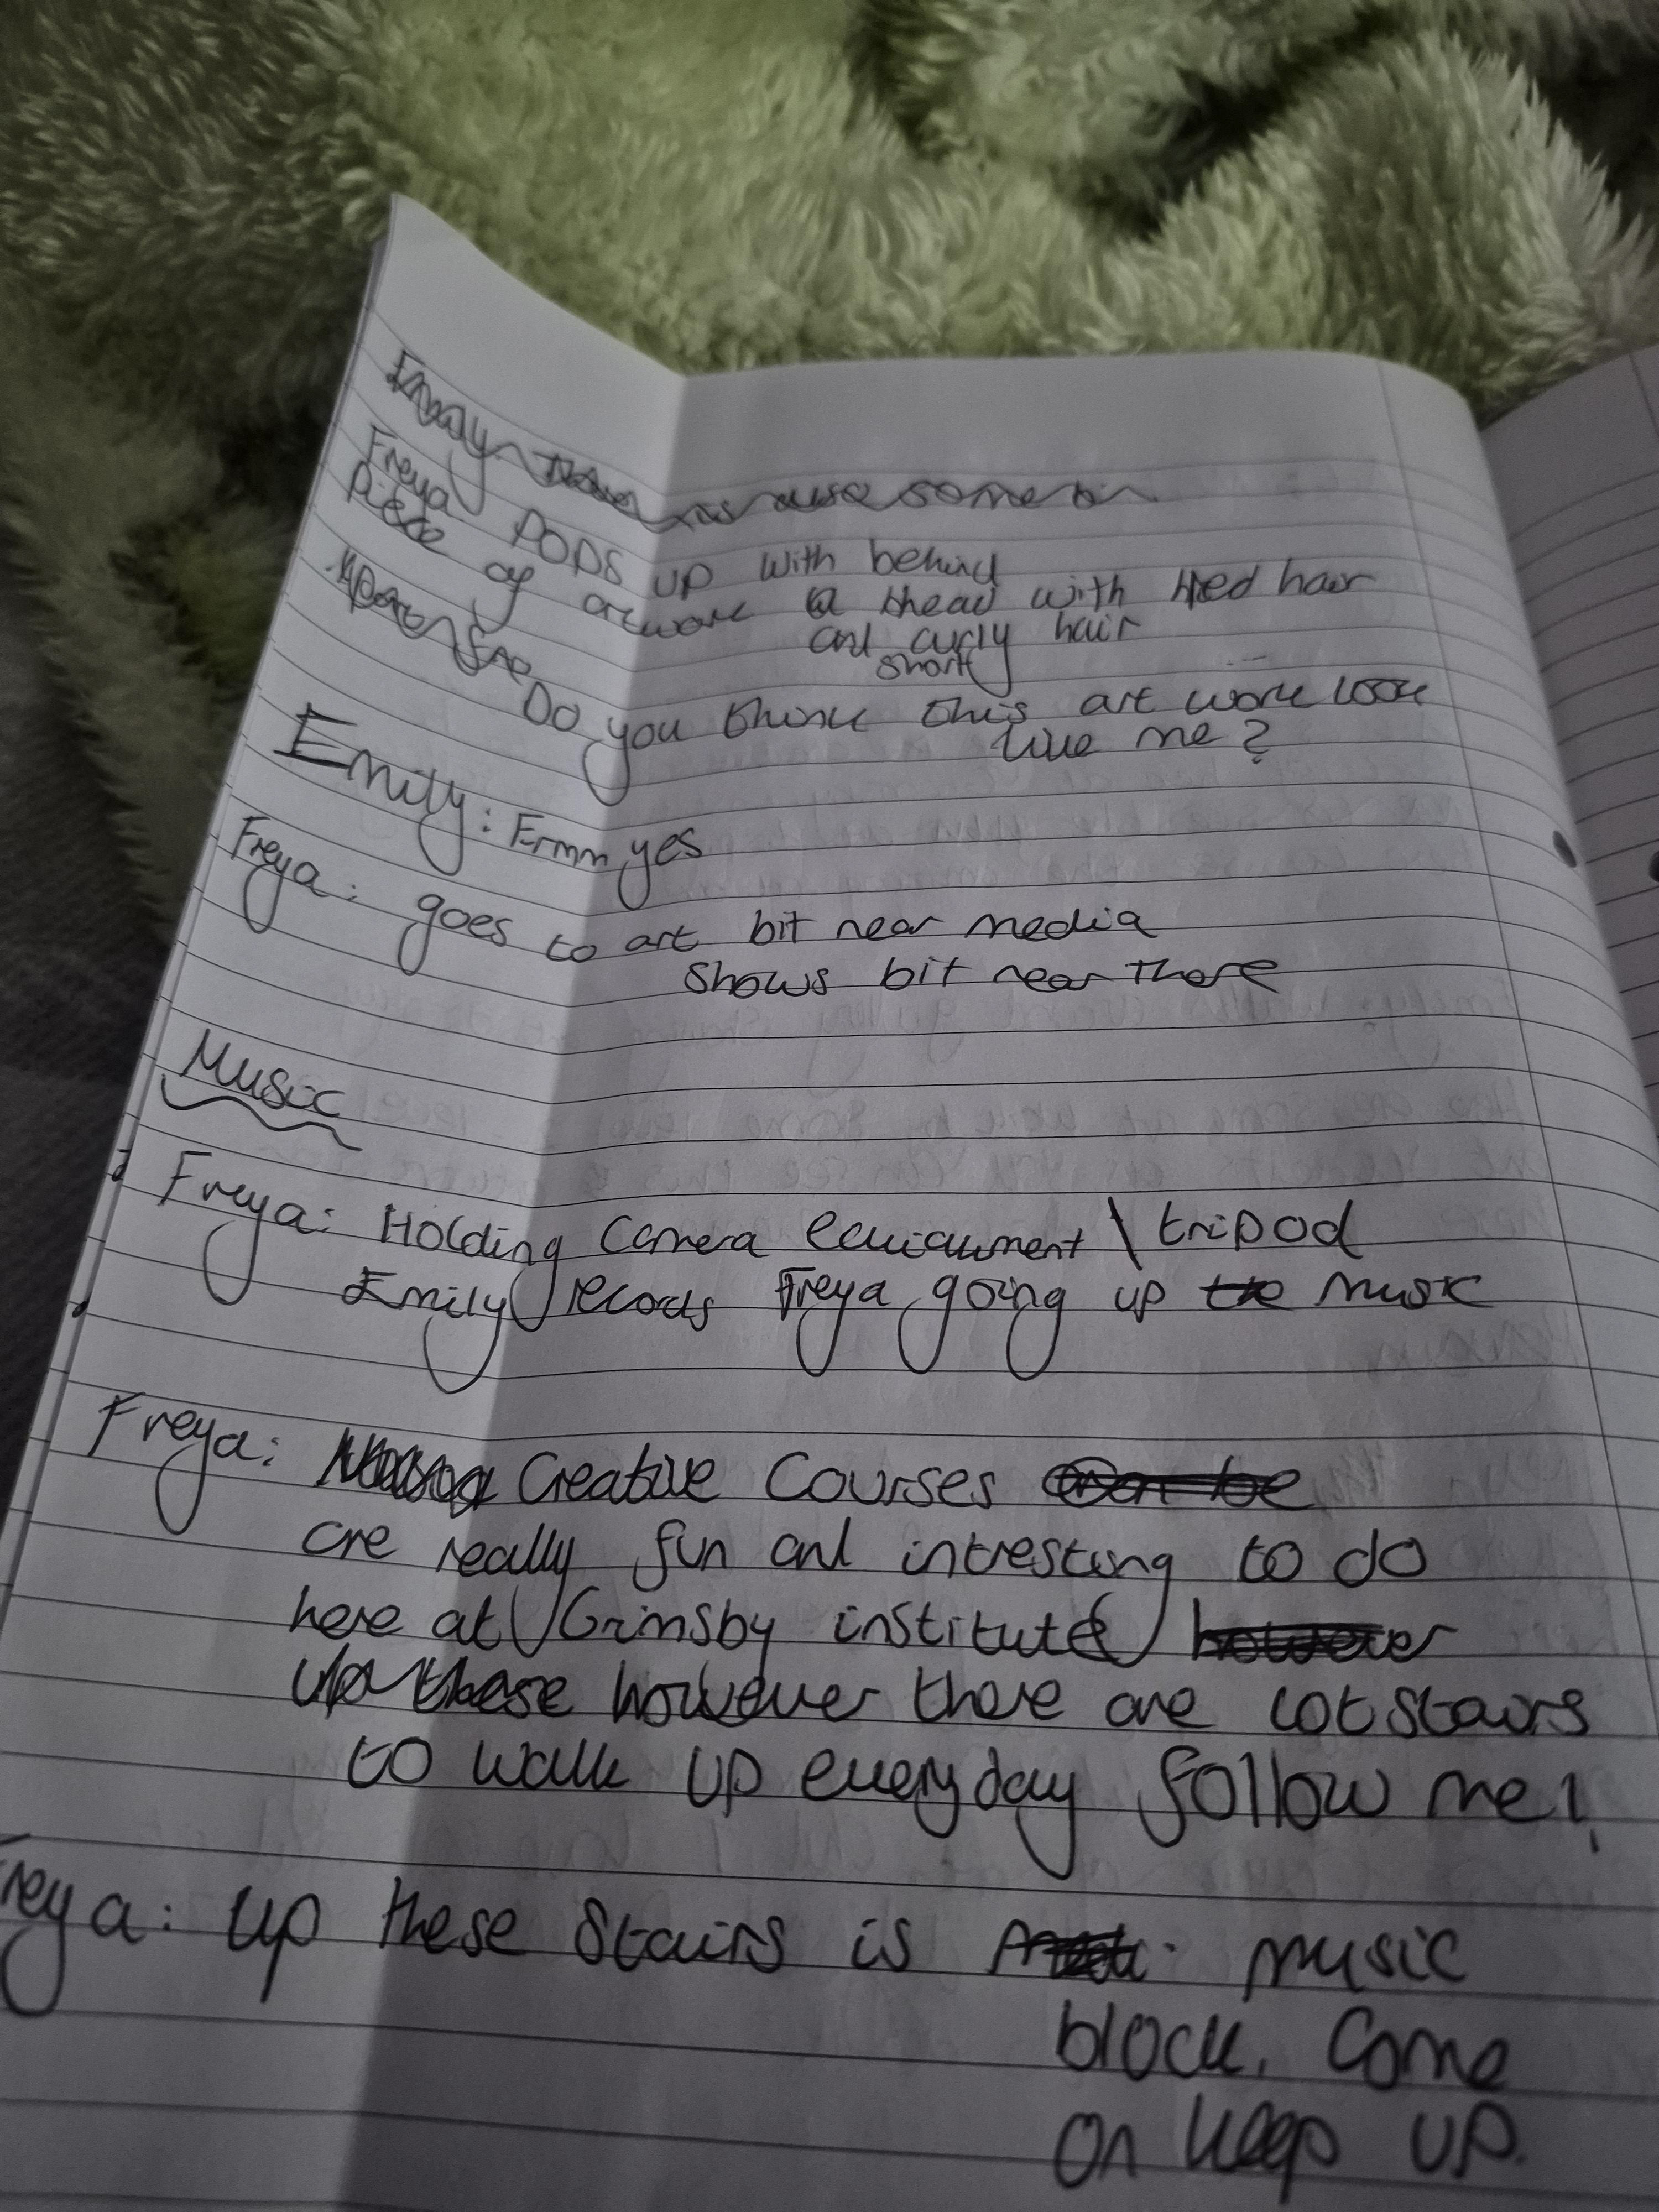 Freya POPS up with behind
piece of artwork a head with red hair
and curly hair
short
Do you think this art work look
like me?
Emily: Ermm yes
Freya: goes to art bit near media
shows bit near there
Music
Freya: Holding Camera \ tripod
Emily records Freya going up the music
Freya: Creative Courses can be
are really fun and intresting to do
here at Grimsby institute however
up these however there are lot stairs
to walk up everyday follow me!
reya: up these stairs is music
block. Come
on keep up.